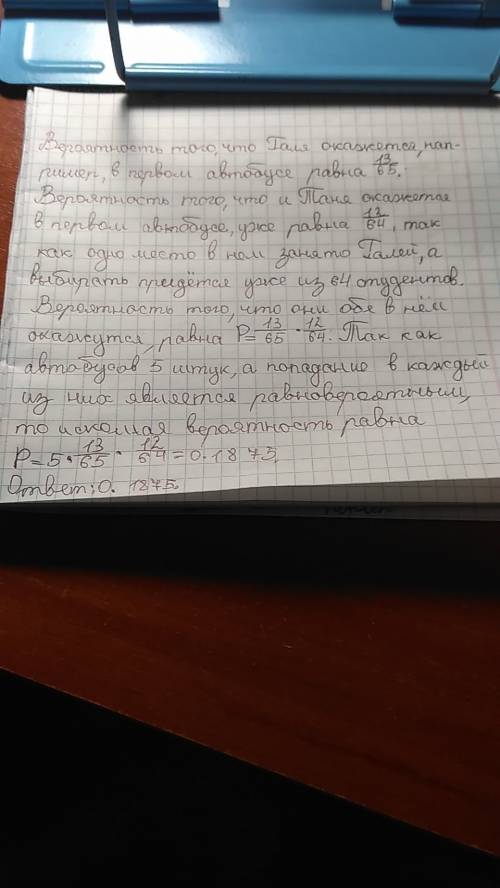 Вероятность того, что Галя окажется, нап-
ример, в первом автобусе равна 13/65.
Вероятность того, что и Таня окажется
в первом автобусе, уже равна 12/64, так
как одно место в нем занято Галей, а
выбирать придётся уже из 64 студентов.
Вероятность того, что они обе в нём
окажутся, равна P= 13/65 · 12/64. Так как
автобусов 5 штук, а попадание в каждый
из них является равновероятным,
то искомая вероятность равна
P=5·13/65·12/64=0.1875
Ответ: 0.1875.